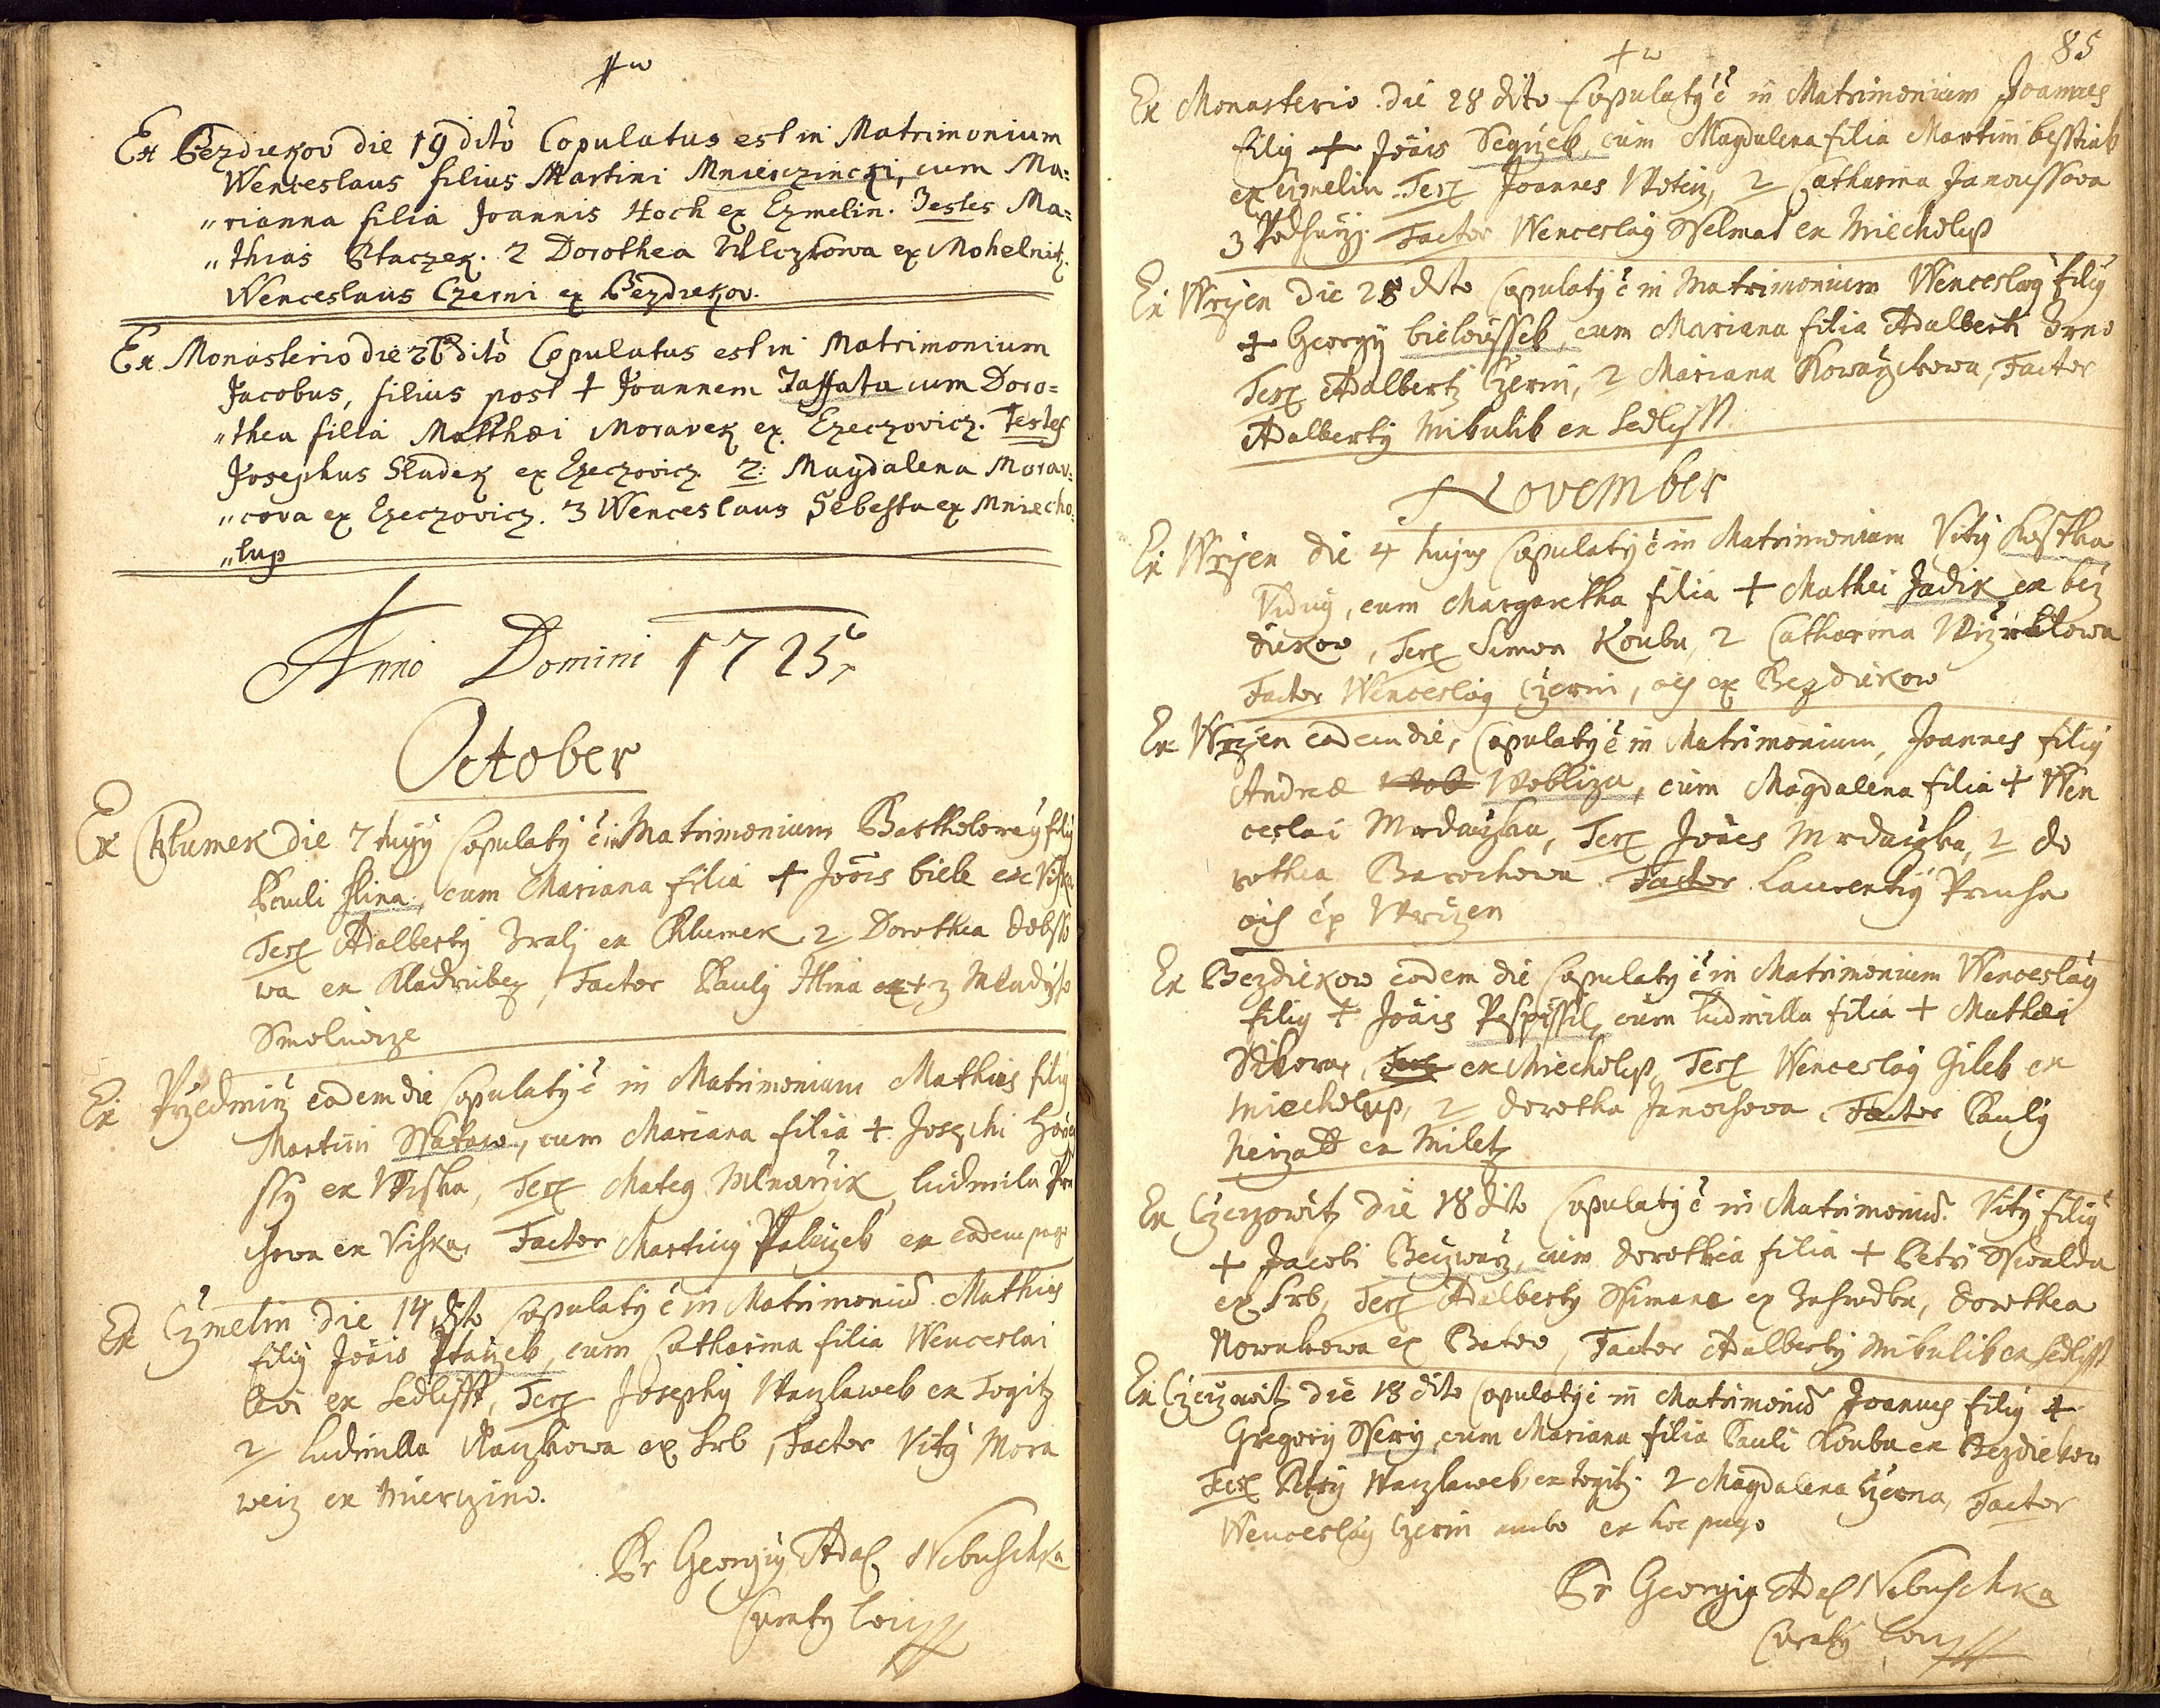 Ex Bezdiekov die 19 dito Copulatus est in Matrimonium
Wenceslaus filius Martini Mnierczinski, cum Ma=
"rianna filia Joannis Hoch ex Czmelin. Testes Ma=
"thias Ptaczek. 2 Dorothea Wlczkowa ex Mohelnitz.
Wenceslaus Czerni ex Bezdiekov.
Ex Monasterio die 26 dito Copulatus est in Matrimonium
Jacobus, filius post + Joannem Taffata cum Doro=
"thea filia Matthæi Moravek ex Czeczovicz. Testes
Josephus Sladek ex Czeczovicz. 2: Magdalena Morav=
"cova ex Czeczovicz. 3 Wenceslaus Sebesta ex Mniecho=
"lup
Anno Domini 1725
October
Ex Chlumek die 7 hujy Copulaty ē in Matrimonium Bartholomey fily
Pauli Hlina, cum Mariana filia + Joōis biele ex Viska
Tesz Adalberty Kralj ex Chlumek 2 Dorothea dobsso
wa ex Kladrubez, Factor Pauly Hlina ex
Smoluicze
Ex Przedmirz eadem die Copulaty ē in Matrimonium Mathias fily
Martini, cum Mariana filia + Josephi
ssy ex Wiska, Tesz Matey Mlnarzik, ludmila
chowa ex Viska, Factor Martiny Paleczek ex eadem pago
Ex Czmelin die 14 dito Copulaty ē in Matrimoniū Mathias
fily Joāis Ptaczek, cum Catharina filia Wenceslai
ex Sedlisst, Tesz Josephy Waczlawek ex Togitz
2 ludmilla ex Srb, Factor Vity Mora
wetz ex Mierczino.
Pr Georgiy Adal Nebuschka
Curaty loci
85
Ex Monasterio die 28 dito Copulaty ē in Matrimonium Joannes
fily + Joāis Segiček, cum Magdalena filia Martini besstiak
ex Czmelin Tesz Joannes, 2 Catharina Janoussowa
3 Podhurzj. Factor Wenceslay Sselmat ex Miecholup
Ex Wrzen die 28 dito Copulaty ē in Matrimonium Wenceslay fily
+ Georgy bieloussek, cum Mariana filia Adalberti Zrno
Tesz Adalberty Czerni, 2 Mariana Kowarzikowa, Factor
Adalberty Mikulik ex Sedlisst
November
Ex Wrzen die 4 hujy Copulaty ē in Matrimonium Vity Kostka
Viduy, cum Margaretha filia + Mathei Jadik ex bez
diekow, Tesz Simon Kouba, 2 Catharina
Factor Wenceslay Czerni, oēs ex Bezdiekow
Ex Wrzen eadem die, Copulaty ē in Matrimonium, Joannes fily
Andreæ Wobliza, cum Magdalena filia + Wen
ceslai Mrdaczka, Tesz Joāes Mrdaczka, 2 do
rothea Barochowa. Factor Laurentiy Prucha
oēs ex Wrczen
Ex Bezdiekow eodem die Copulaty ē in Matrimonium Wenceslay
fily + Joāis Pospissil, cum ludmilla filia + Mathæi
ex Miecholup, Tesz Wenceslay Gilek ex
Miecholup, 2 dorotha Janochowa. Factor Pauly
ex Miletz
Ex Czeczowitz die 18 dito Copulaty ē in Matrimoniū. Vity fily
+ Jacobi Beczwarz, cum dorothea filia + Petri
ex Srb, Tesz Adalberty Ssimana ex Zahradka, dorothea
Nowakowa ex Bukov, Factor Adalberty Mikulik ex Sedlisst
Ex Czeczowitz die 18 dito Copulaty ē in Matrimoniū Joannes fily +
Gregory Ssery, cum Mariana filia Pauli Kouba ex Bezdiekow
Tesz Petry Waczlawek ex Togitz. 2 Magdalena Czerna, Factor
Wenceslay Czerni ambo ex hoc pago
Pr Georgiy Adal Nebuschka
Curaty loci